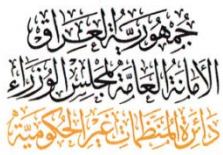 جمهورية العراق
الأمانة العامة لمجلس الوزراء
دائرة المنظمات غير الحكومية